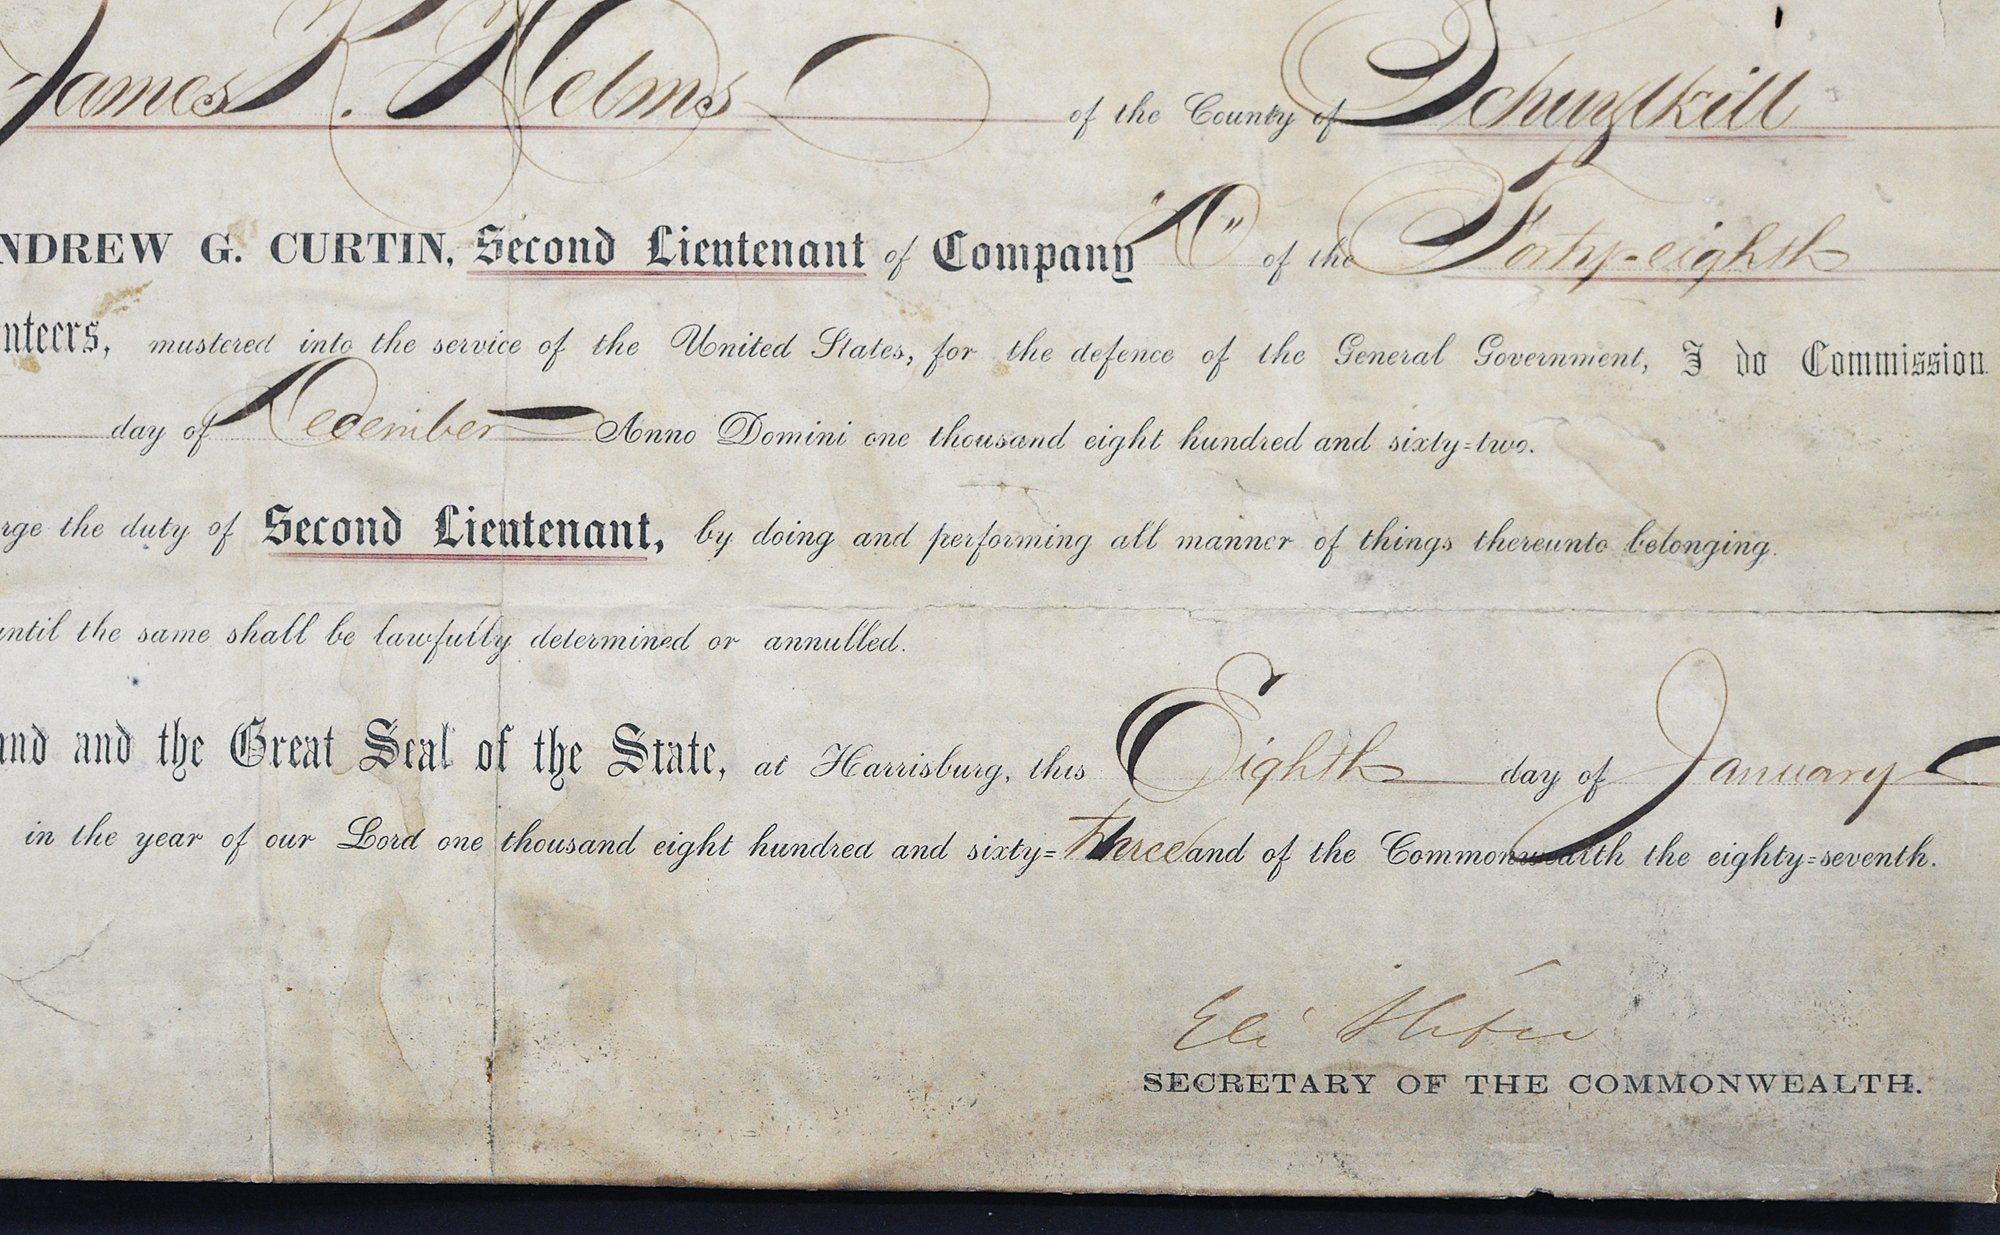 James K. Helms of the County of Schuylkill
NDREW G. CURTIN, Second Lieutenant of Company "D" of the Forty-eighth
nteers, mustered into the service of the United States, for the defence of the General Government, I do Commission
day of December Anno Domini one thousand eight hundred and sixty=two.
rge the duty of Second Lieutenant, by doing and performing all manner of things thereunto belonging.
until the same shall be lawfully determined or annulled.
and and the Great Seal of the State, at Harrisburg, this Eighth day of January
in the year of our Lord one thousand eight hundred and sixty=three and of the Commonwealth the eighty=seventh.
Eli Slifer
SECRETARY OF THE COMMONWEALTH.